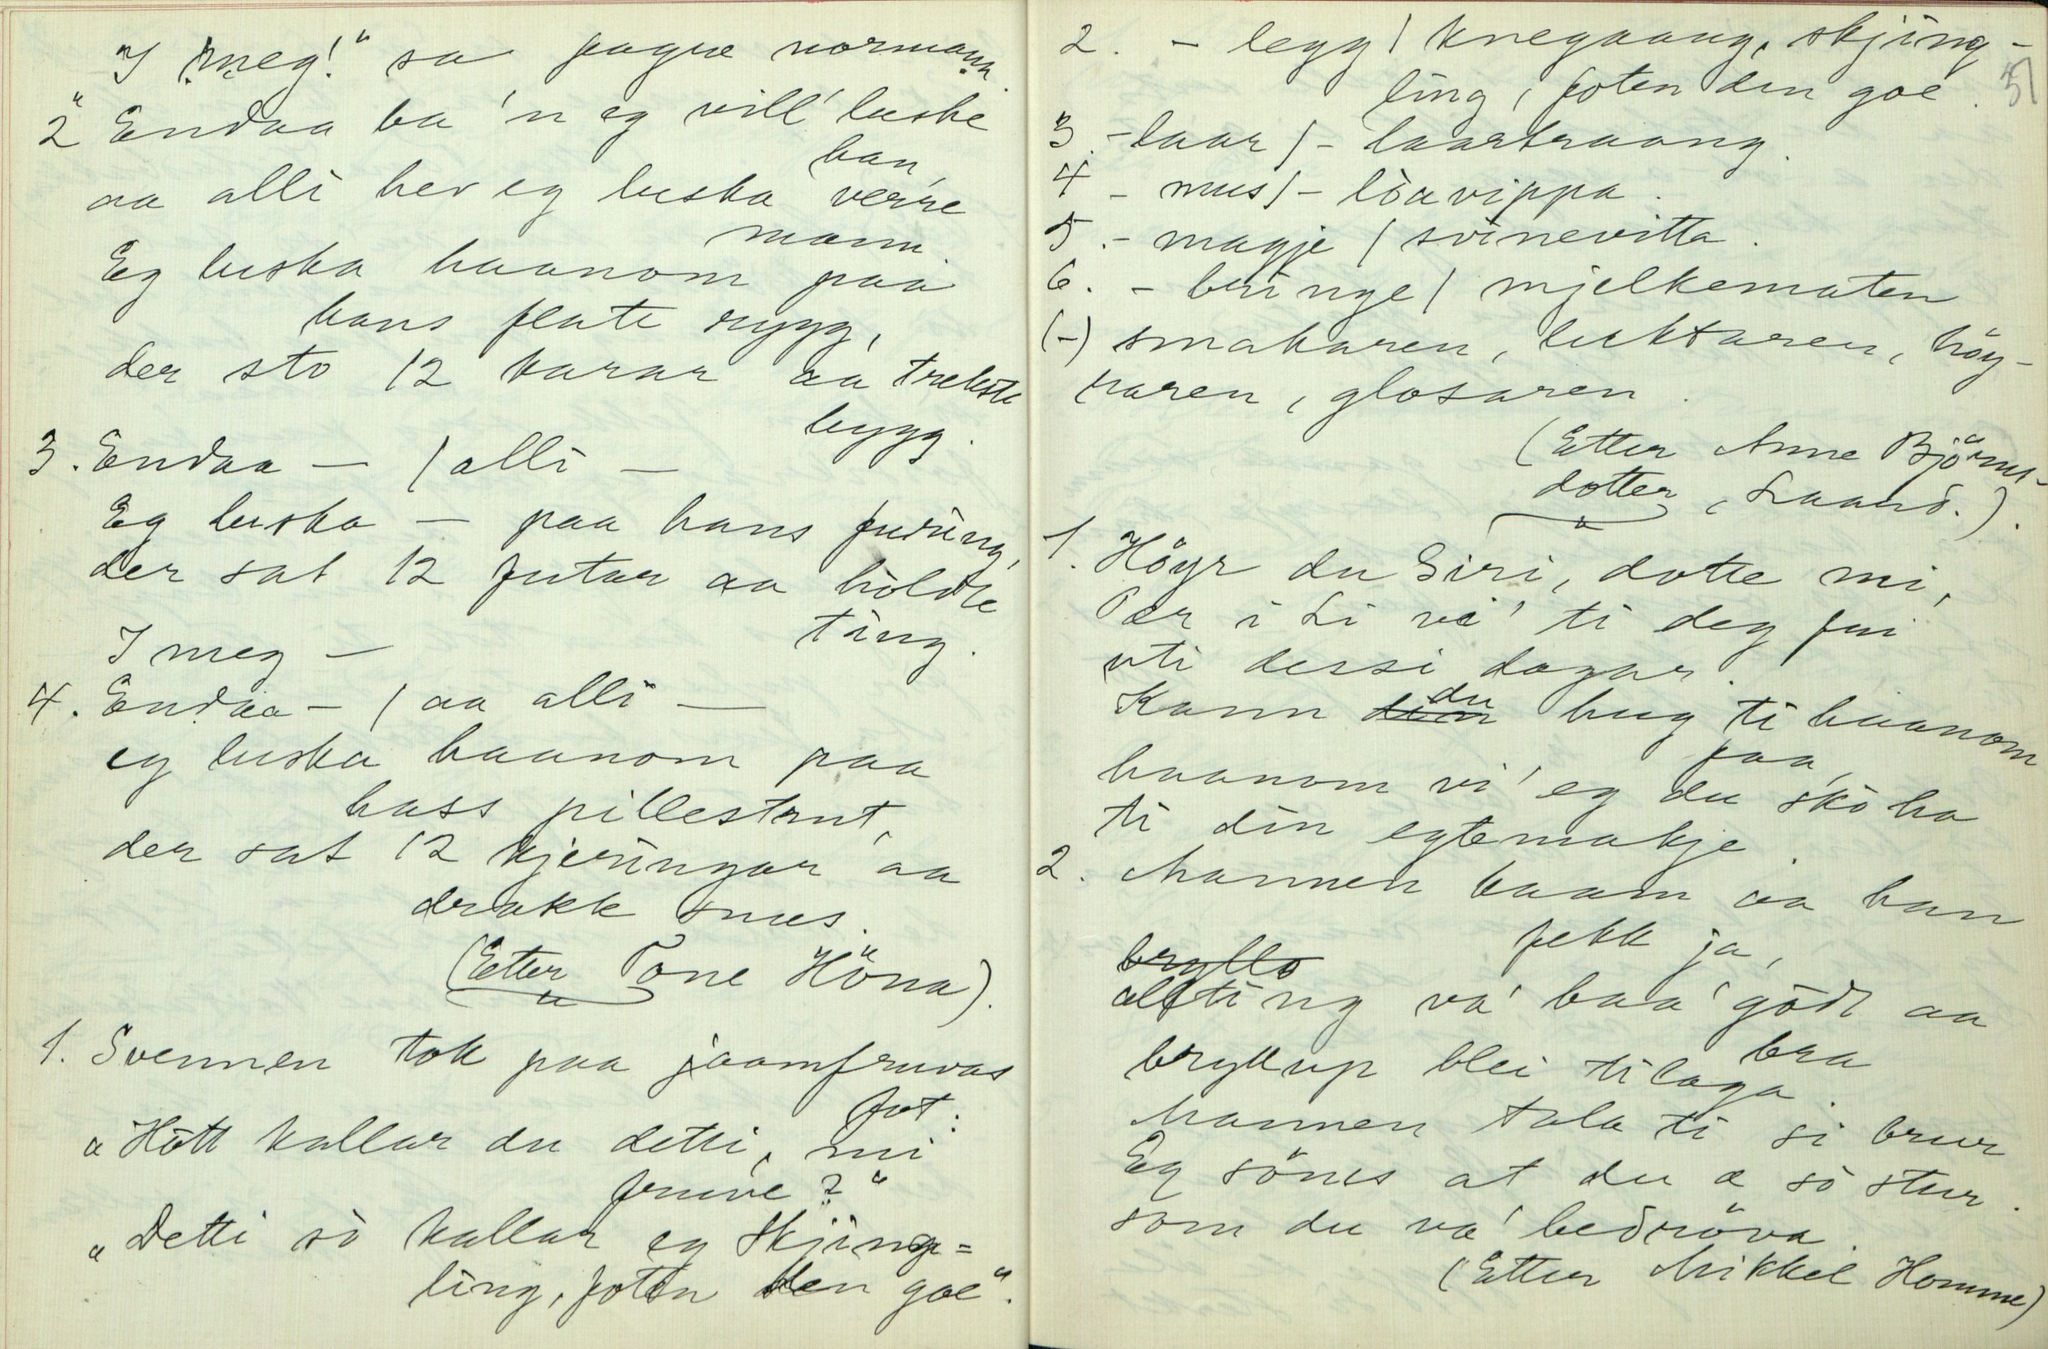 "I meg!" sa fagre normann.
2. "Endaa ba 'n eg vill' luske
han,
aa alli hev eg luska verre
mann.
Eg luska haanom paa
hans flate rygg,
der sto 12 karar aa treskte
bygg.
3. Endaa — / alli —
Eg luska — paa hans
der sat 12 futar aa holdte
ting.
I meg —
4. Endaa — / aa alli —
eg luska haanom paa
hass pillestrut,
der sat 12 kjeringar aa
drakk snus.
(Etter Tone Höna).
1. Svennen tok paa jaamfruvas
fot:
"Hott kallar du detti, mi
fruve?"
"Detti so kallar eg skjing-
ling, foten den goe".
2. - legg / knegaang, skjing-
ling, foten den goe.
51
3. - laar / - laartraang.
4. - mus / - löavippa.
5. - magje / svinevitta.
6. - bringe / mjelkematen
(-) smakaren, luktaren, höy-
raren, glosaren.
(Etter Anne Björns-
dotter, Laand.).
1. Höyr du Siri, dotte mi,
Per i Li vi' ti deg fri
uti dessi dagar.
Kann din du hug ti haanom
faa,
haanom vi' eg du sko ha
ti din egtemakje.
2. Mannen kaam aa han
fekk ja,
bryllo
allting va' baa' godt aa
bra
bryllup blei tilaga.
Mannen tala ti si brur
Eg sönes at du æ so stur
som du va' bedröva.
(Etter Mikkel Homme)